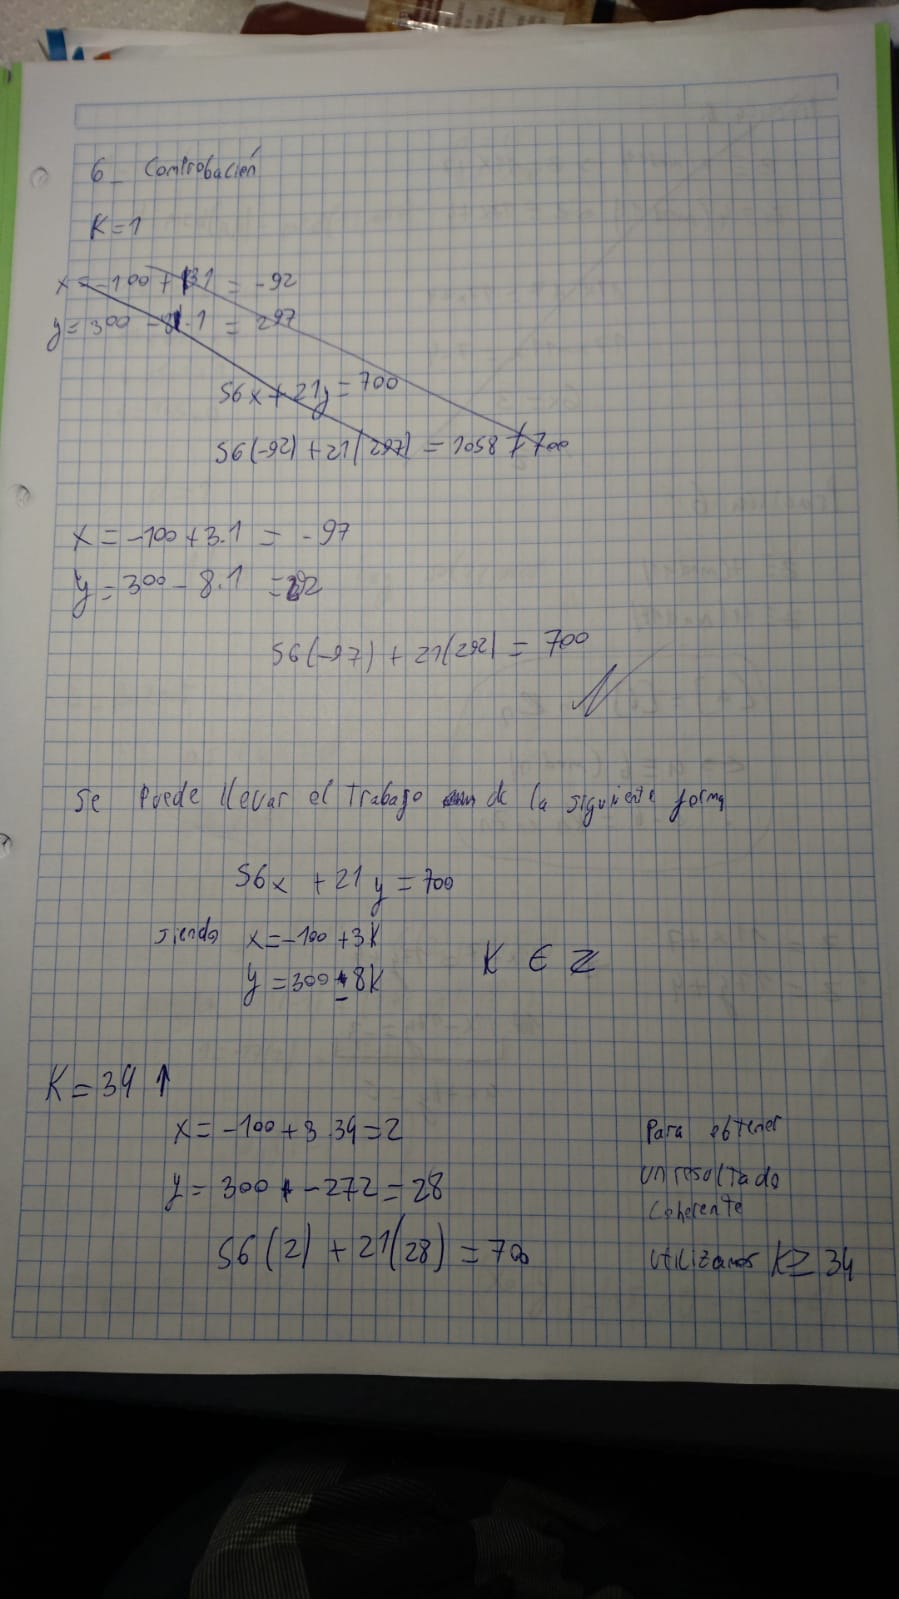 6_ Comprobación
K=1
x = -100 + 3.1 = -92
y = 300 - 8.1 = 297
56x + 21y = 700
56(-92) + 21(297) = 1058 ≠ 700
x = -100 + 3.1 = -97
y = 300 - 8.1 = 292
56(-97) + 21(292) = 700
Se Puede llevar el Trabajo de la siguiente forma
56x + 21y = 700
siendo x = -100 + 3K
y = 300 - 8K
K ∈ Z
K = 34 ↑
x = -100 + 3.34 = 2
y = 300 - 272 = 28
56(2) + 21(28) = 700
Para obtener
un resultado
coherente
utilizamos K ≥ 34